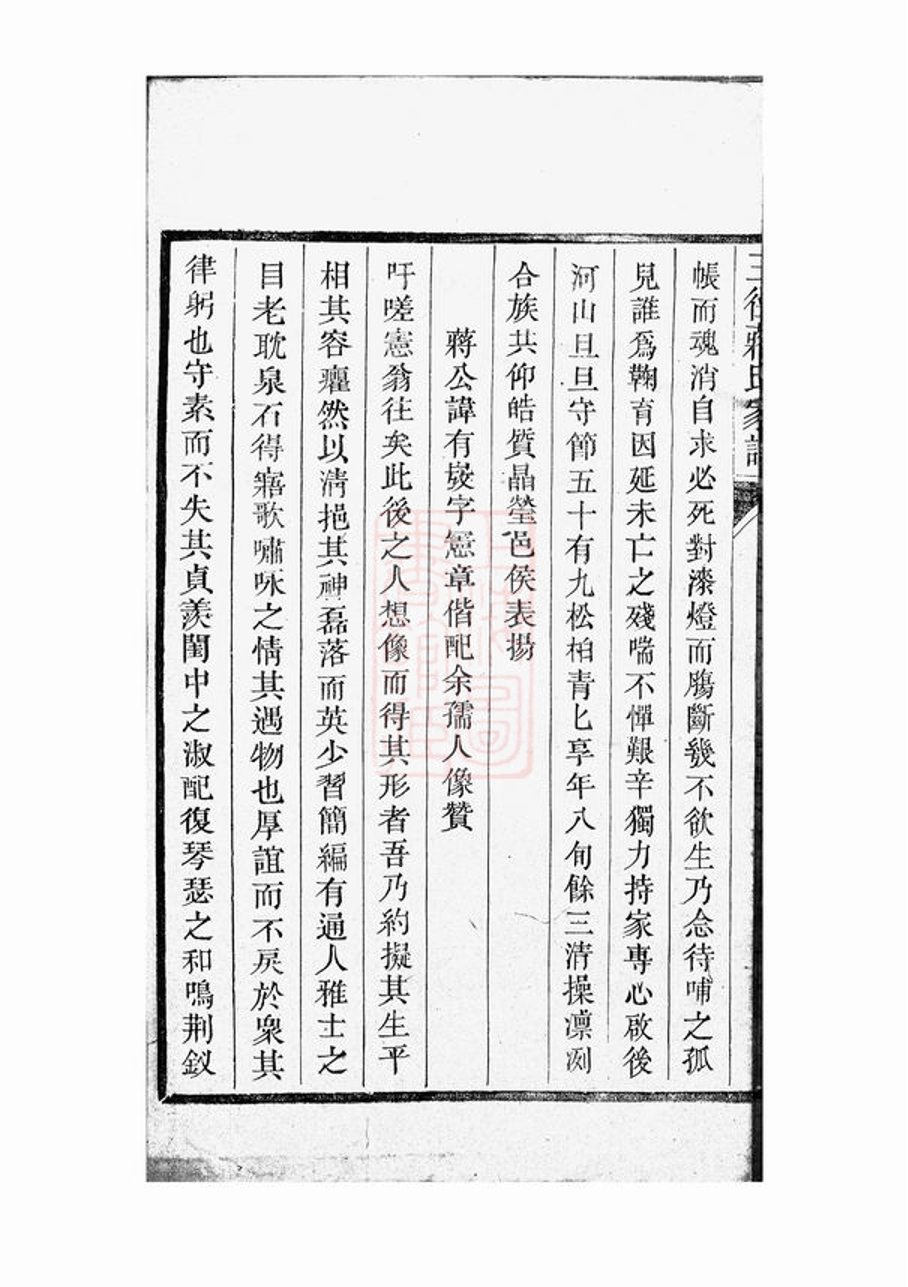 三徑蔣氏家譜
帳而魂消自求必死對漆燈而腸斷幾不欲生乃念待哺之孤
兒誰爲鞠育因延未亡之殘喘不憚艱辛獨力持家專心啟後
河山旦旦守節五十有九松柏青匕享年八旬餘三清操凛冽
合族共仰皓質晶瑩邑侯表揚
蔣公諱有燮字憲章偕配余孺人像贊
吁嗟憲翁往矣此後之人想像而得其形者吾乃約擬其生平
相其容癯然以清挹其神磊落而英少習簡編有通人雅士之
目老耽泉石得寤歌嘯咏之情其遇物也厚誼而不戾於衆其
律躬也守素而不失其貞羨閨中之淑配復琴瑟之和鳴荆釵